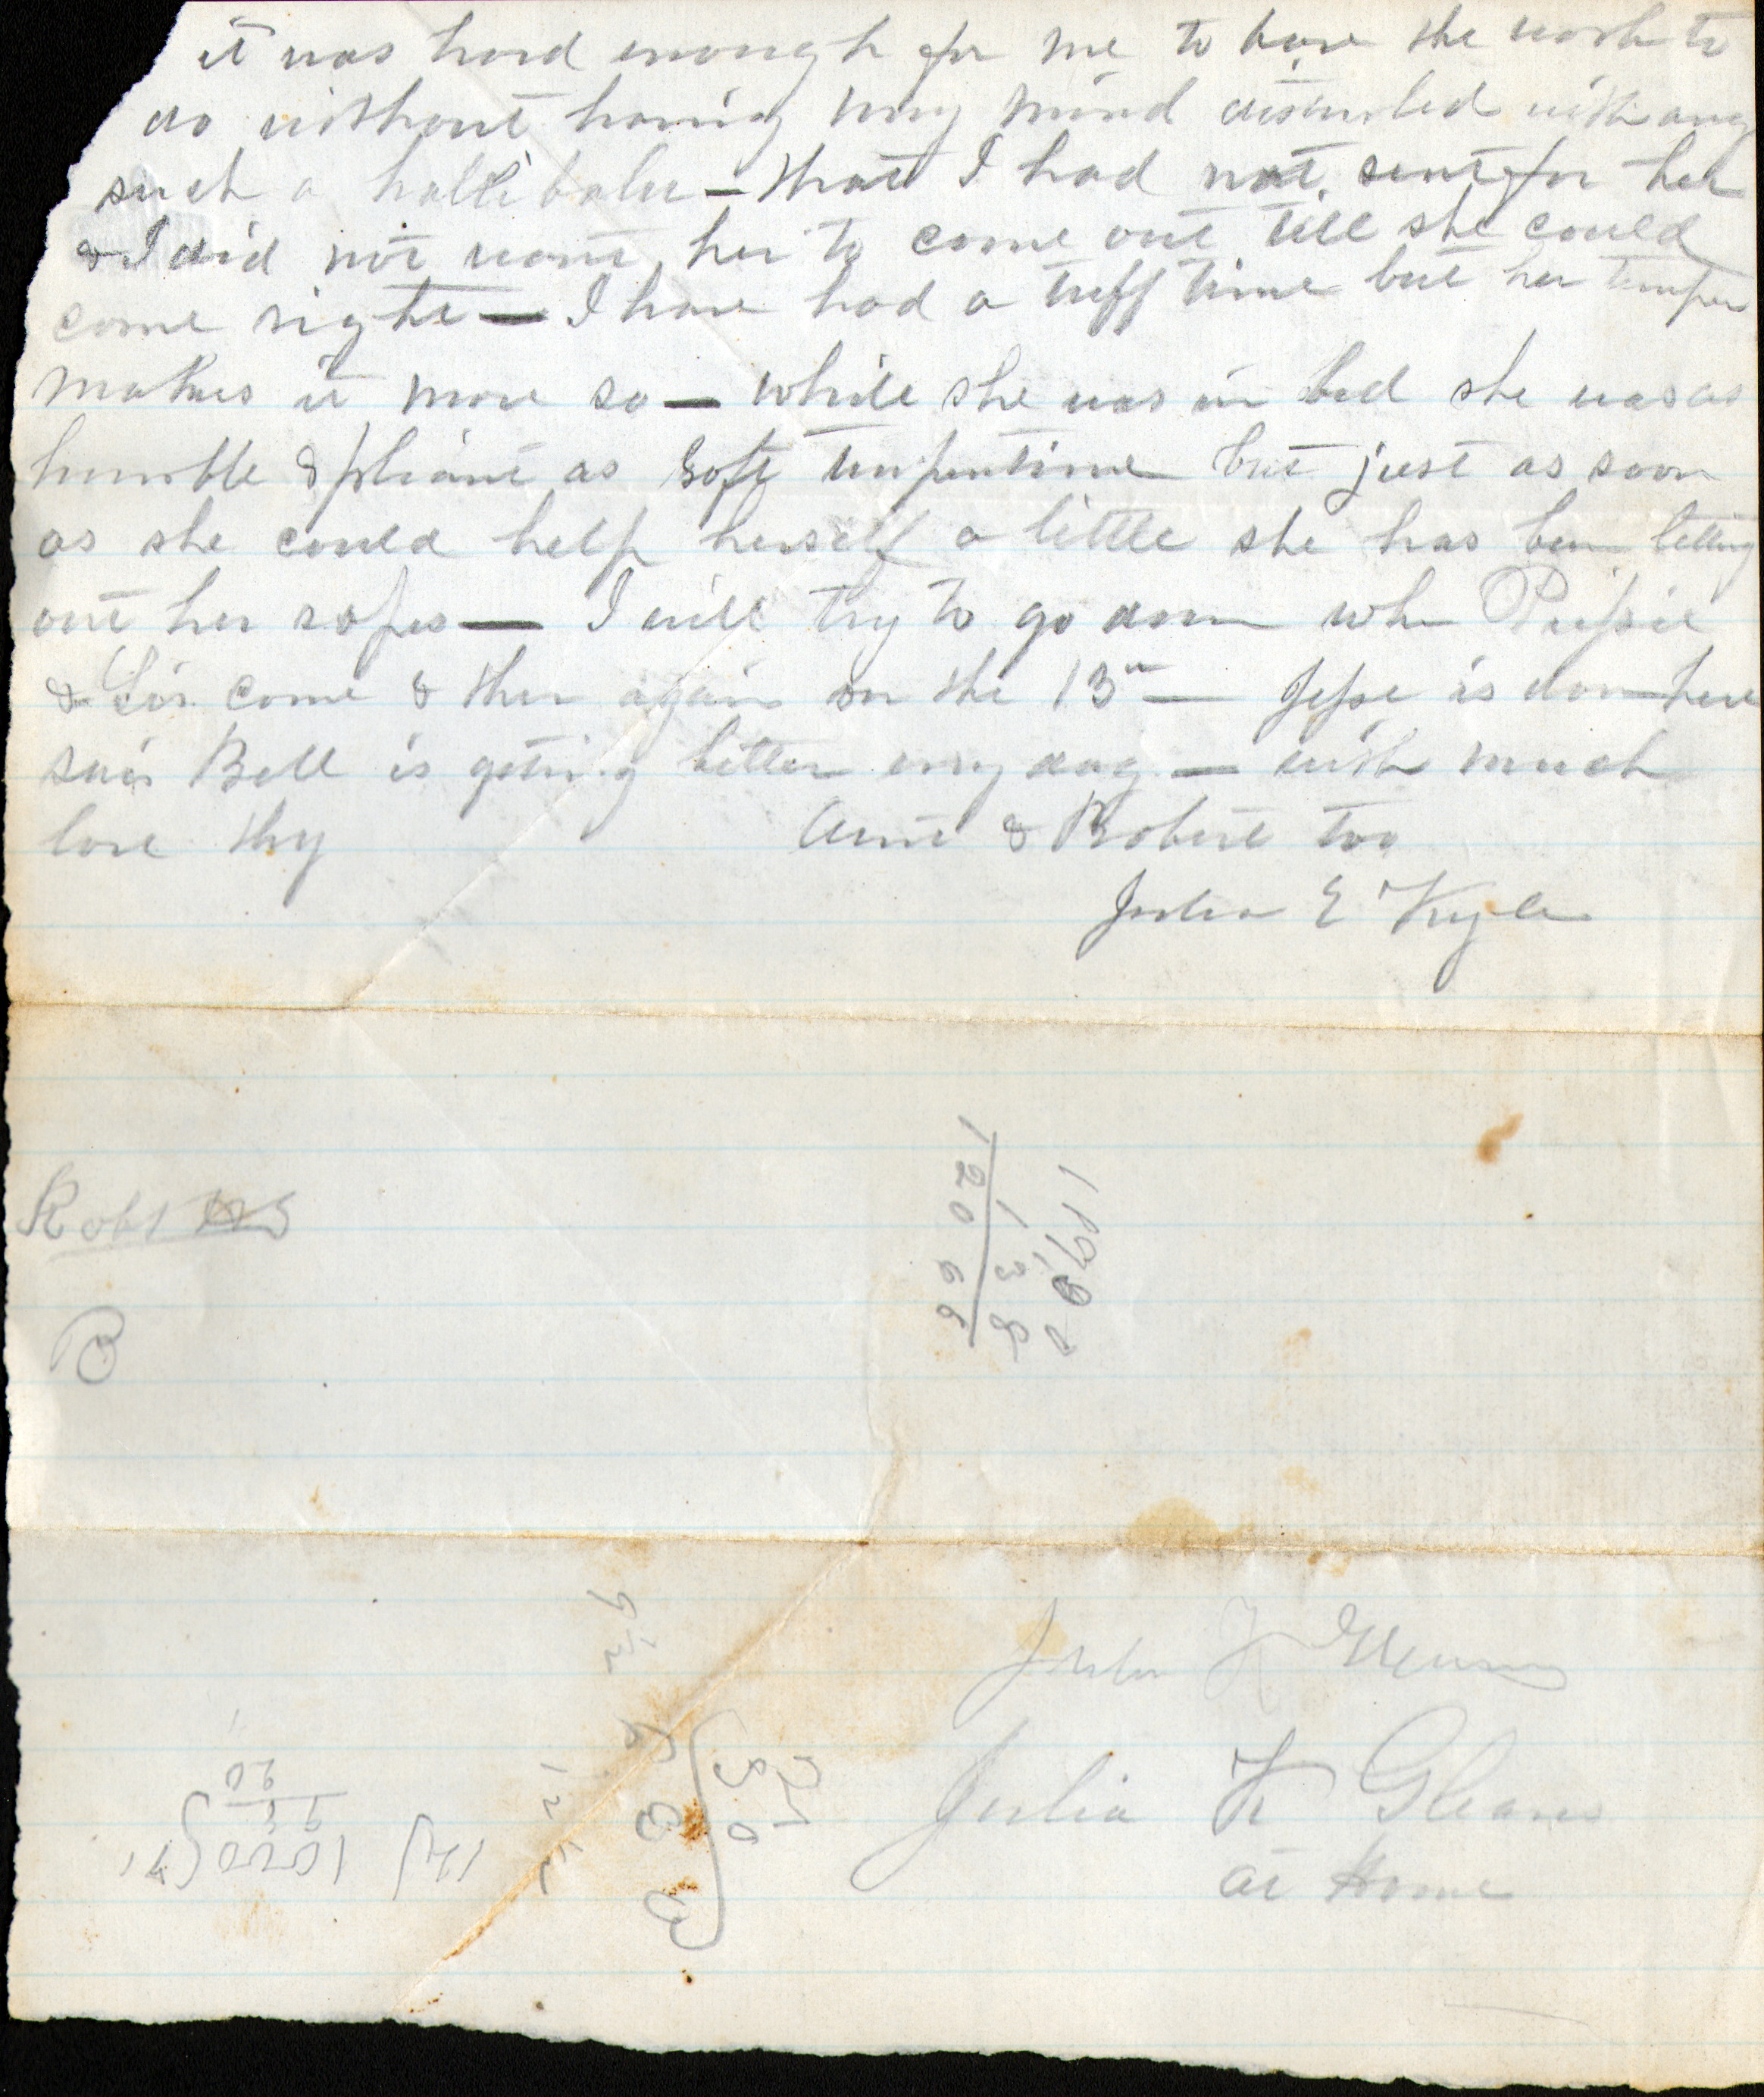 it was hard enough for me to have the work to
do without having my mind disturbed with any
such a hallibaloo — that I had not sent for her
& I did not want her to come out till she could
come right — I have had a tuff time but her temper
makes it more so — while she was in bed she was as
humble & pliant as soft turpentine but just as soon
as she could help herself a little she has been letting
out her ropes — I will try to go down when
& Sis come & then again on the 13th — Jesse is down here
says Bell is getting better every day — with much
love thy Aunt & Robert too
Julia E Kyle
Robt
B
1898
138
12066
Julia K
Julia K Gleaves
at Home